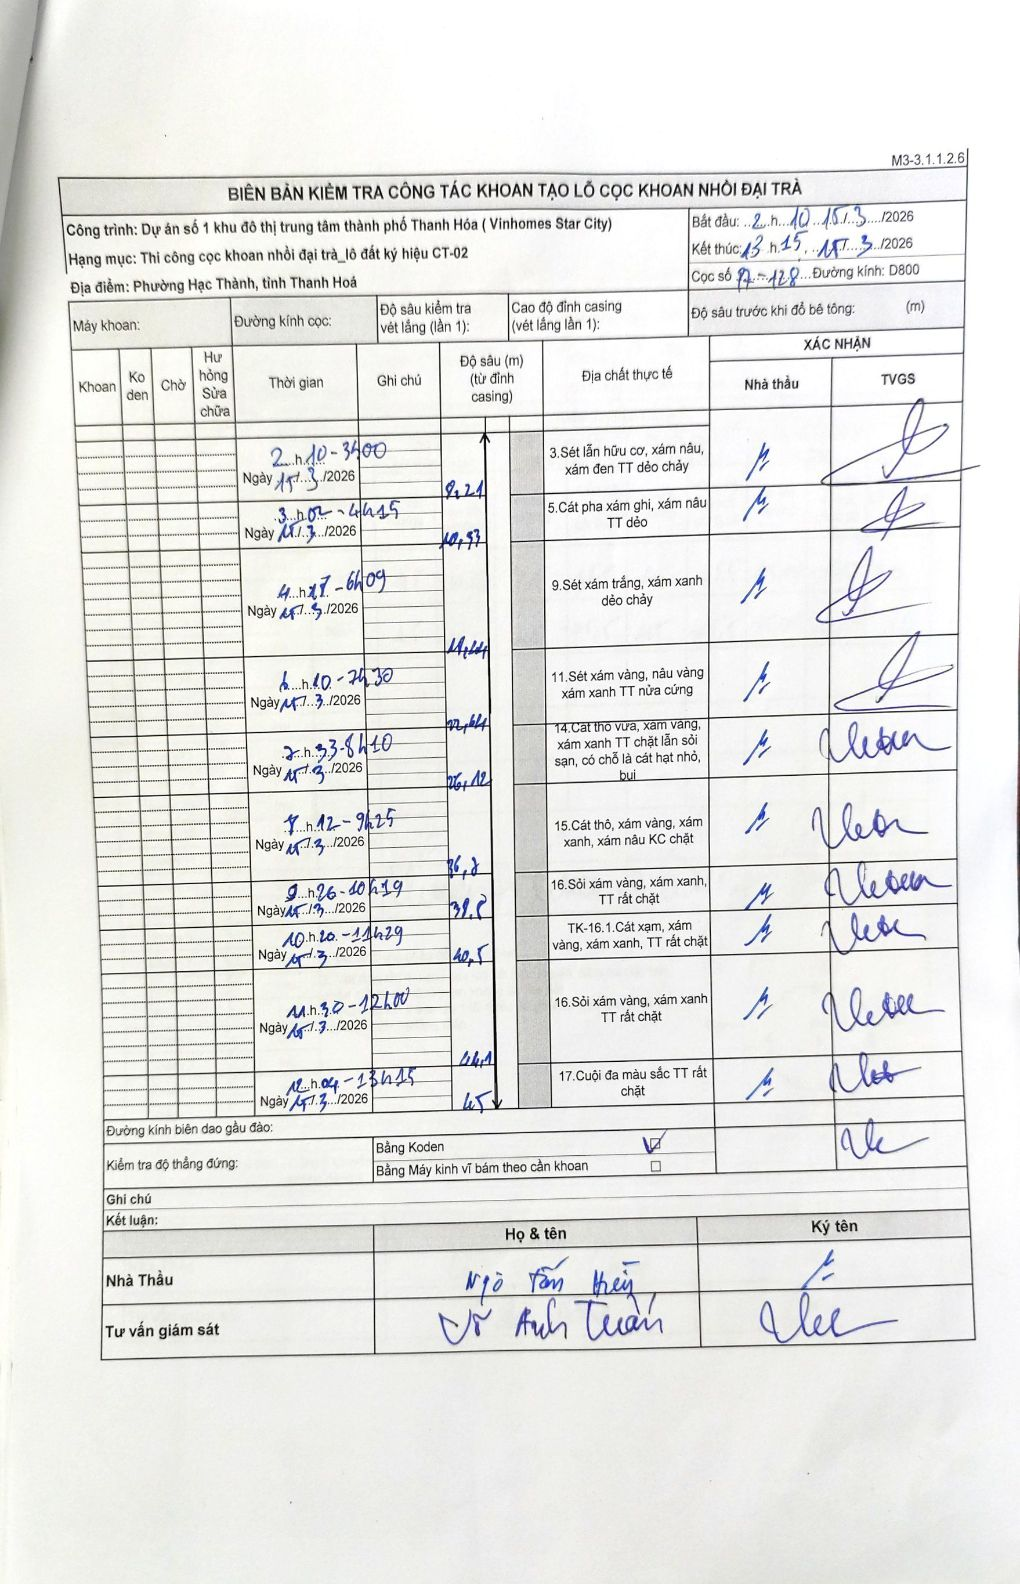 M3-3.1.1.2.6
BIÊN BẢN KIỂM TRA CÔNG TÁC KHOAN TẠO LỖ CỌC KHOAN NHỒI ĐẠI TRÀ
Công trình: Dự án số 1 khu đô thị trung tâm thành phố Thanh Hóa ( Vinhomes Star City)
Hạng mục: Thi công cọc khoan nhồi đại trà_lô đất ký hiệu CT-02
Địa điểm: Phường Hạc Thành, tỉnh Thanh Hoá
Bắt đầu: 2 h 10 15/3/2026
Kết thúc: 13 h 15, 15/3/2026
Cọc số P-128 Đường kính: D800
Máy khoan:
Đường kính cọc:
Độ sâu kiểm tra
vét lắng (lần 1):
Cao độ đỉnh casing
(vét lắng lần 1):
Độ sâu trước khi đổ bê tông: (m)
Khoan
Ko
den
Chờ
Hư
hỏng
Sửa
chữa
Thời gian
Ghi chú
Độ sâu (m)
(từ đỉnh
casing)
Địa chất thực tế
XÁC NHẬN
Nhà thầu
TVGS
2 h 10 - 3h00
Ngày 15/3/2026
3.Sét lẫn hữu cơ, xám nâu,
xám đen TT dẻo chảy
8,21
3 h 02 - 4h15
Ngày 15/3/2026
5.Cát pha xám ghi, xám nâu
TT dẻo
4 h 17 - 6h09
Ngày 15/3/2026
9.Sét xám trắng, xám xanh
dẻo chảy
6 h 10 - 7h30
Ngày 15/3/2026
11.Sét xám vàng, nâu vàng
xám xanh TT nửa cứng
7 h 33 - 8h10
Ngày 15/3/2026
14.Cát thô vừa, xám vàng,
xám xanh TT chặt lẫn sỏi
sạn, có chỗ là cát hạt nhỏ,
bụi
26,12
8 h 12 - 9h25
Ngày 15/3/2026
15.Cát thô, xám vàng, xám
xanh, xám nâu KC chặt
36,2
9 h 26 - 10h19
Ngày 15/3/2026
16.Sỏi xám vàng, xám xanh,
TT rất chặt
39,8
10 h 20 - 11h29
Ngày 15/3/2026
TK-16.1.Cát xạm, xám
vàng, xám xanh, TT rất chặt
40,5
11 h 30 - 12h00
Ngày 15/3/2026
16.Sỏi xám vàng, xám xanh
TT rất chặt
44,1
12 h 04 - 13h15
Ngày 15/3/2026
17.Cuội đa màu sắc TT rất
chặt
45
Đường kính biên dao gầu đào:
Kiểm tra độ thẳng đứng:
Bằng Koden
Bằng Máy kinh vĩ bám theo cần khoan
Ghi chú
Kết luận:
Họ & tên
Ký tên
Nhà Thầu
Ngô Tấn
Tư vấn giám sát
Võ Anh Tuấn